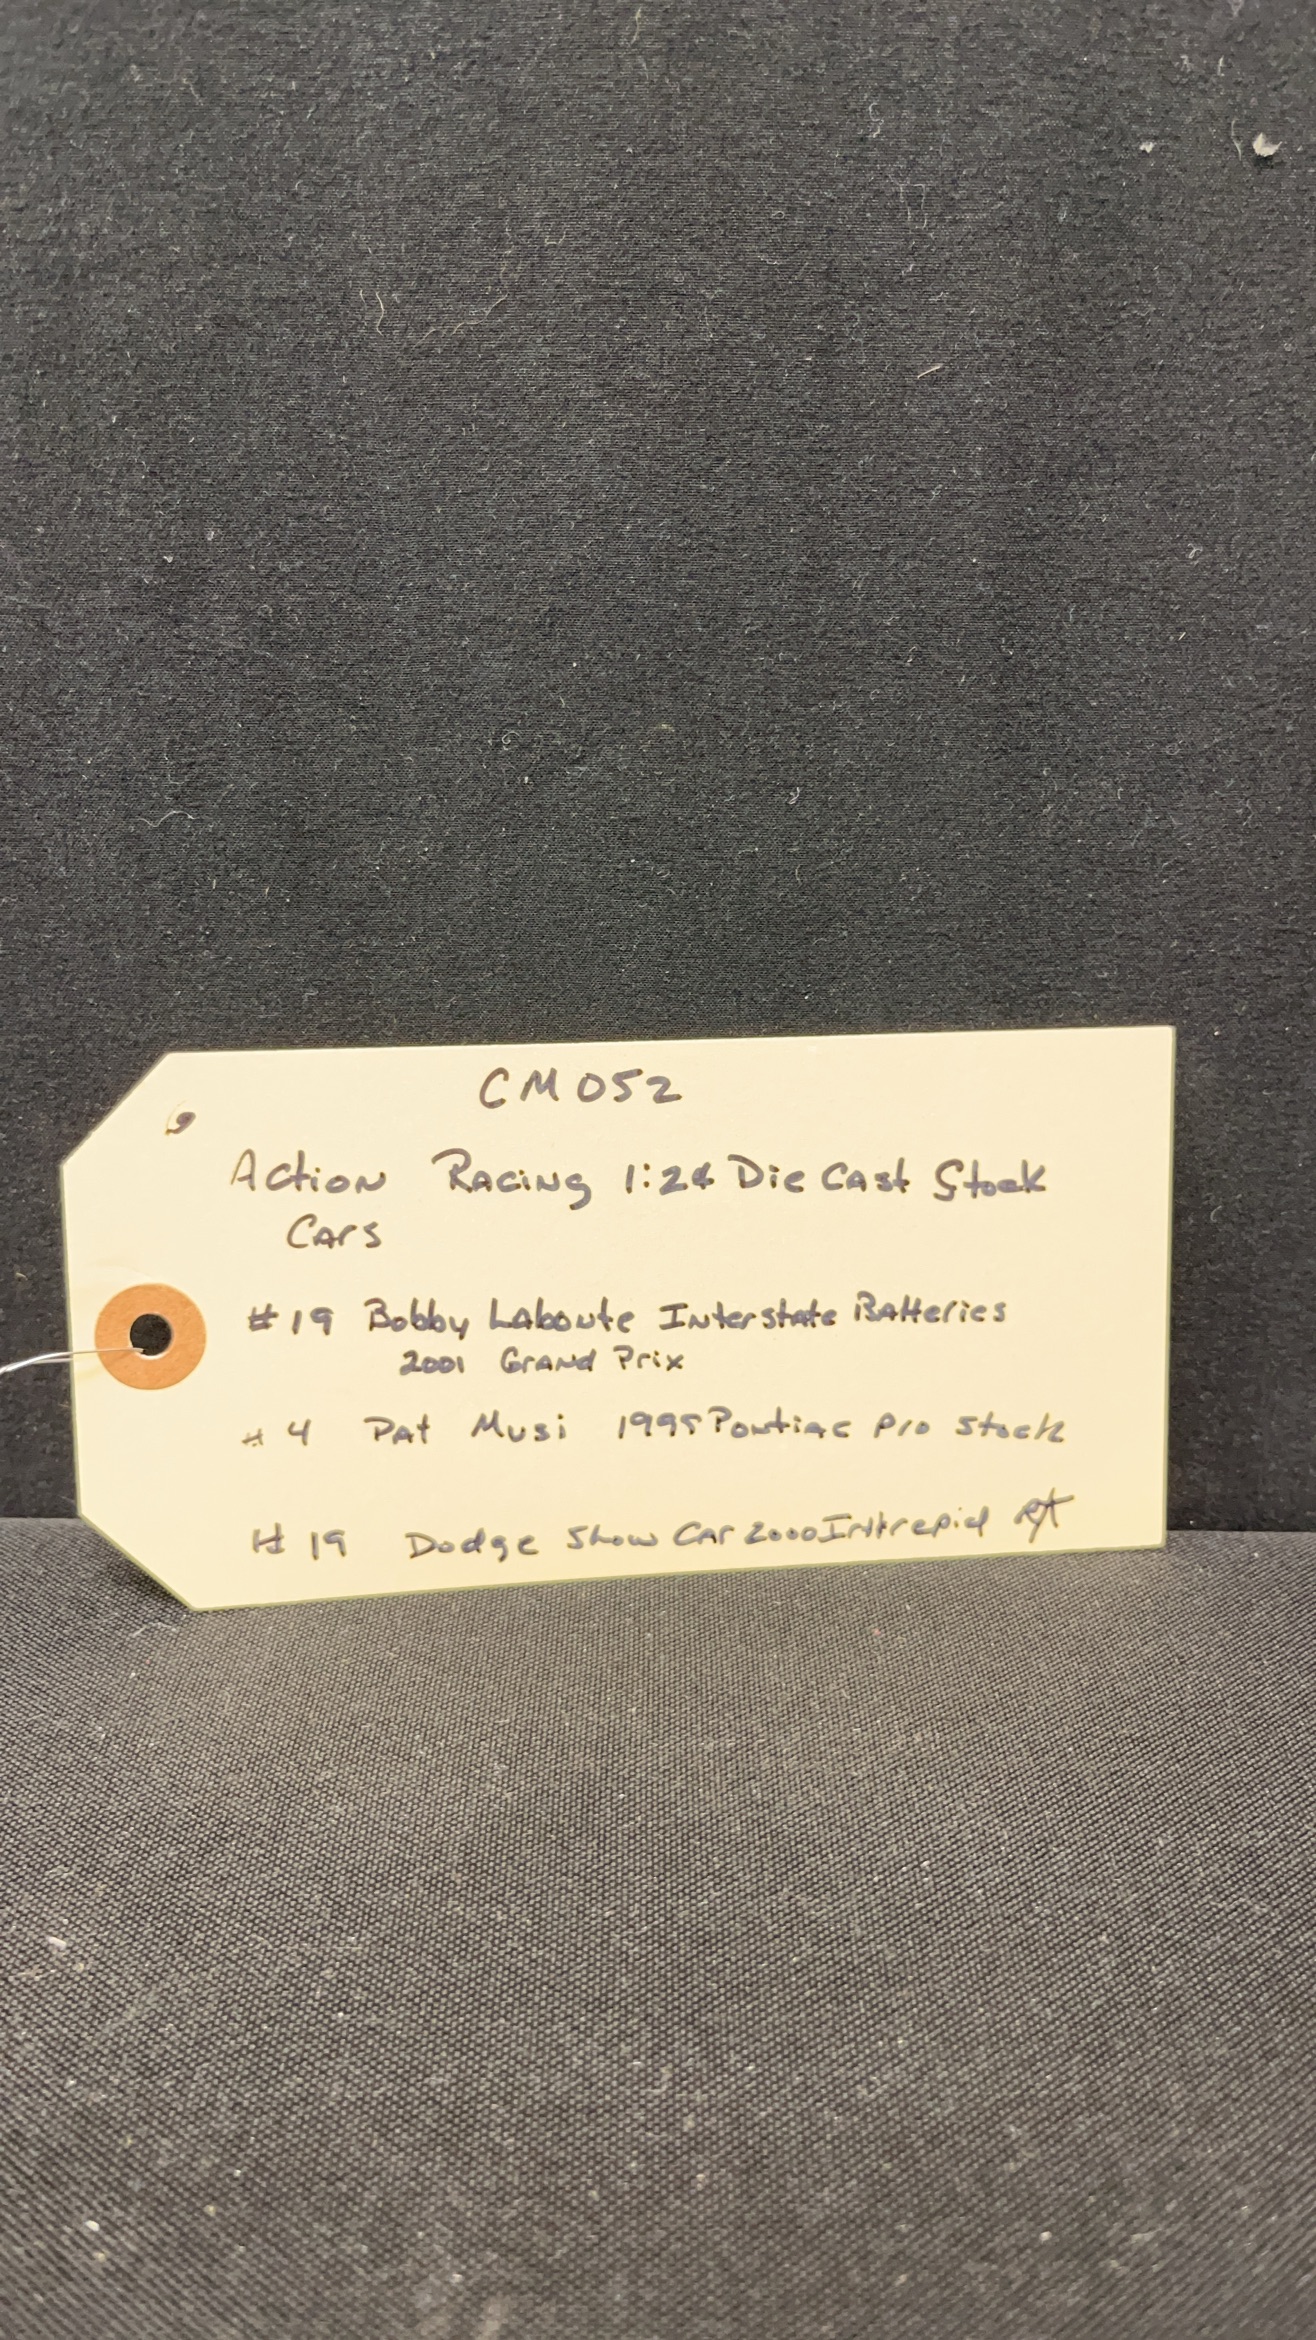 CM052
Action Racing 1:24 Die Cast Stock
Cars
#19 Bobby Laboute Interstate Batteries
2001 Grand Prix
#4 Pat Musi 1995 Pontiac Pro Stock
#19 Dodge Show Car 2000 Intrepid